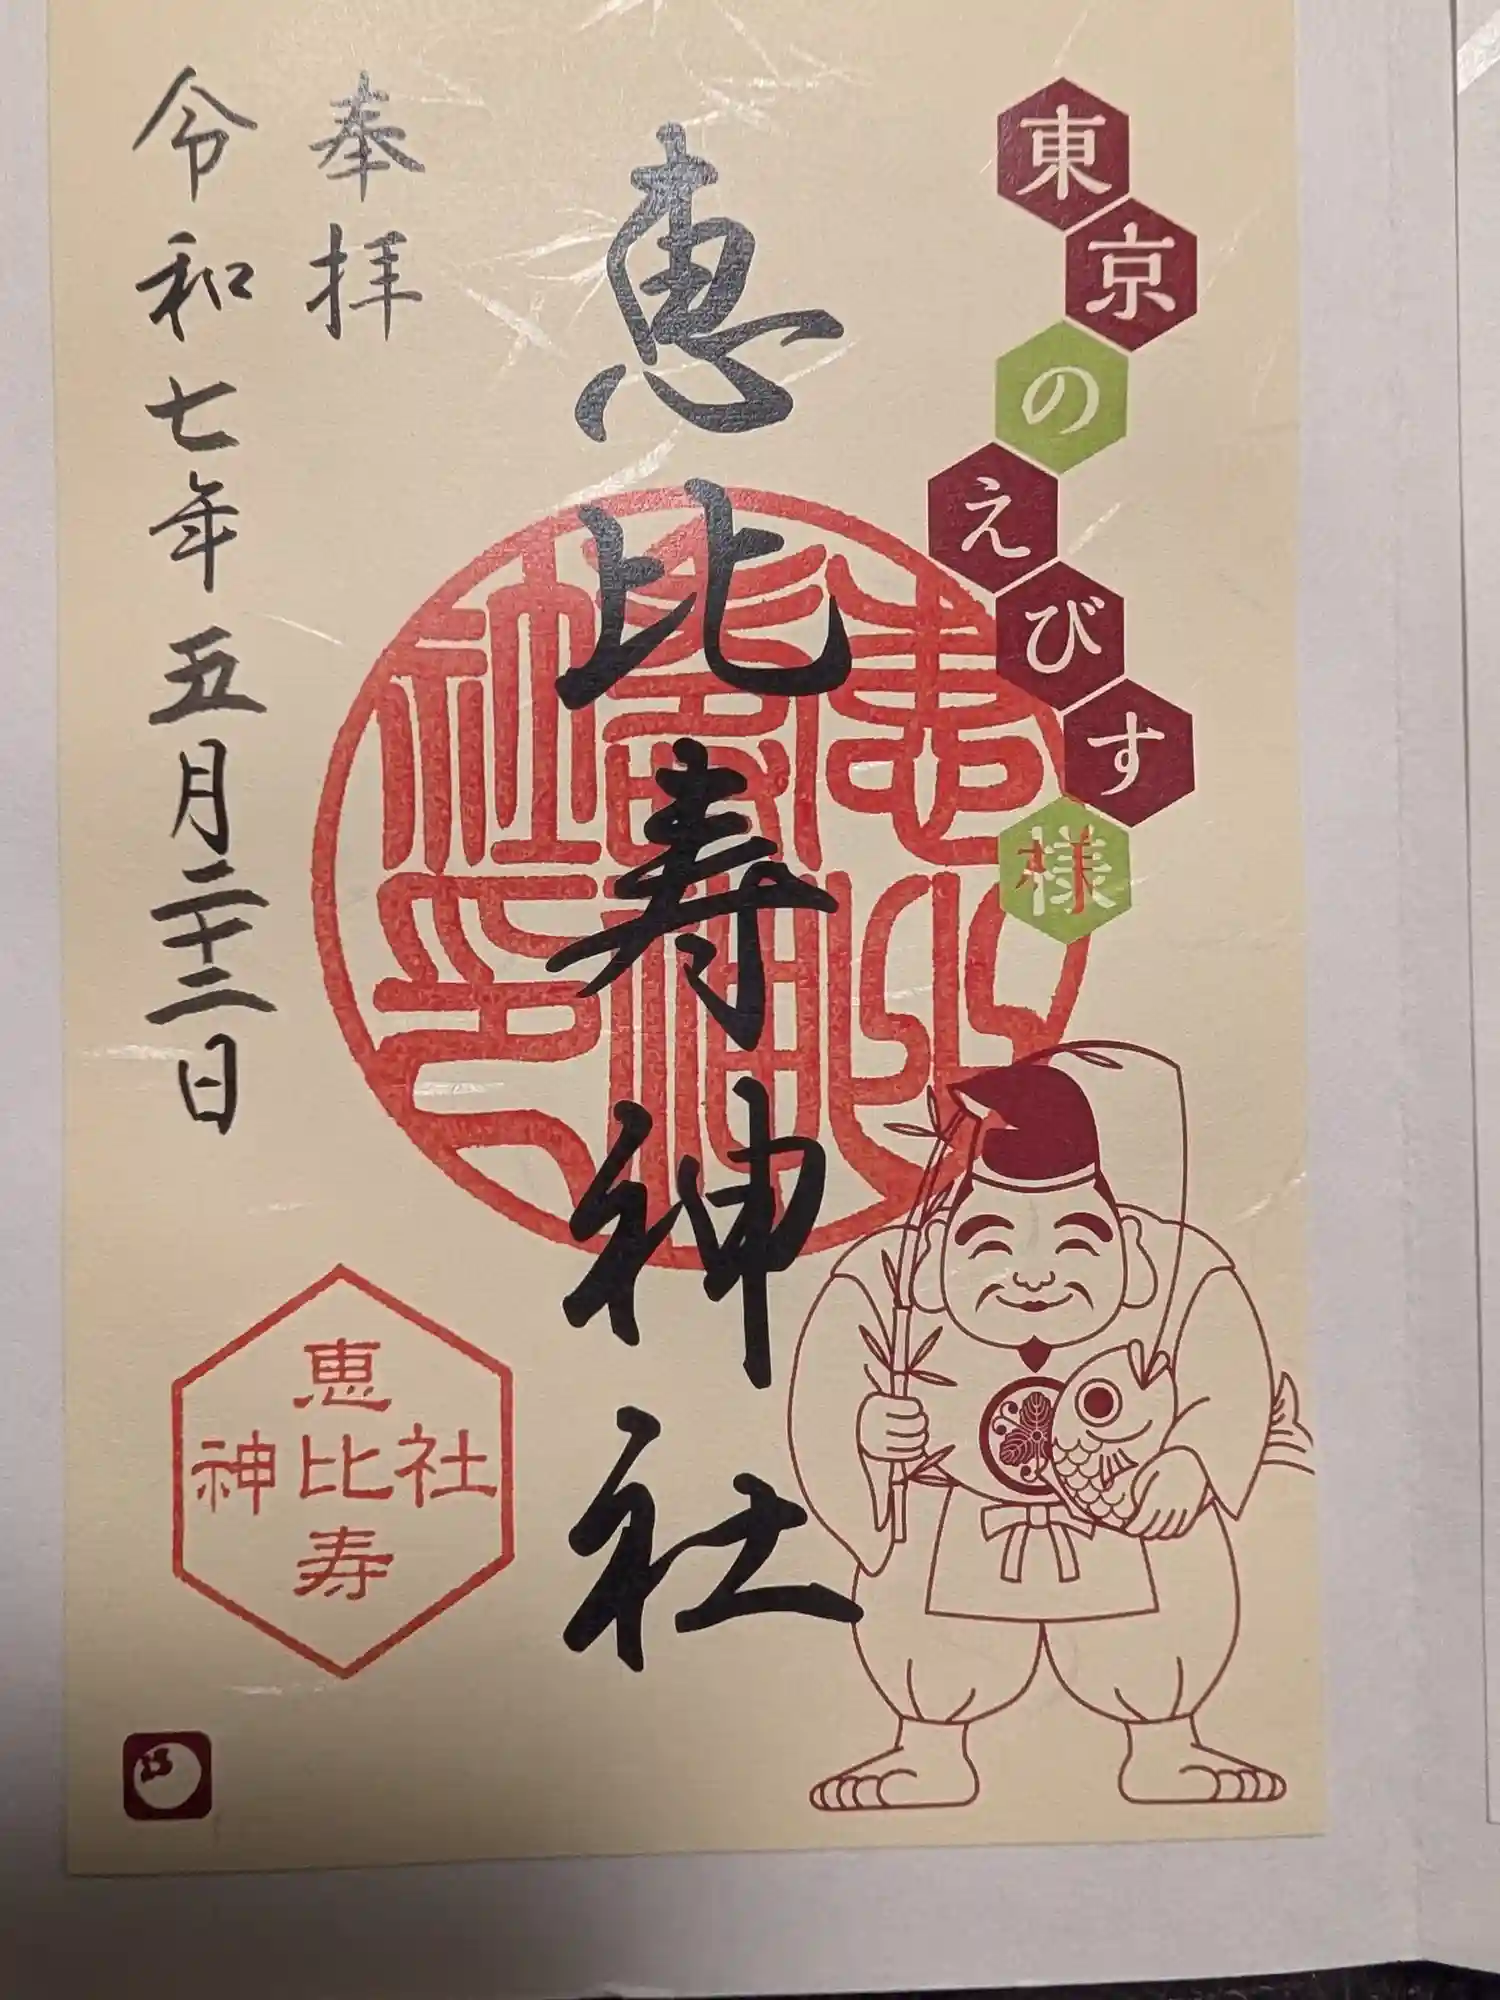 東京のえびす様
恵比寿神社
奉拝
令和七年五月二十二日
恵比壽神社印
恵比寿
神社